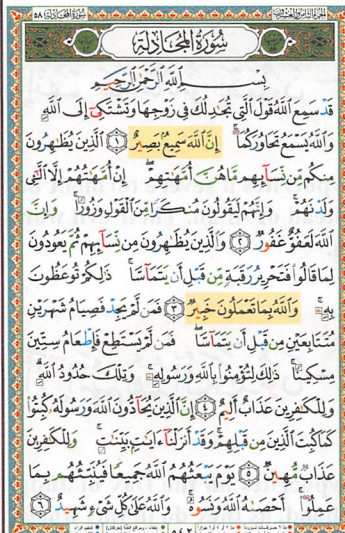 سورة المجادلة ٥٨
سُورَةُ المُجَادلَة
بِسْمِ اللَّهِ الرَّحْمَٰنِ الرَّحِيمِ
قَدْ سَمِعَ اللَّهُ قَوْلَ الَّتِي تُجَادِلُكَ فِي زَوْجِهَا وَتَشْتَكِي إِلَى اللَّهِ
وَاللَّهُ يَسْمَعُ تَحَاوُرَكُمَا ۚ إِنَّ اللَّهَ سَمِيعٌ بَصِيرٌ ١ الَّذِينَ يُظَاهِرُونَ
مِنكُم مِّن نِّسَائِهِم مَّا هُنَّ أُمَّهَاتِهِمْ ۖ إِنْ أُمَّهَاتُهُمْ إِلَّا اللَّائِي
وَلَدْنَهُمْ ۚ وَإِنَّهُمْ لَيَقُولُونَ مُنكَرًا مِّنَ الْقَوْلِ وَزُورًا ۚ وَإِنَّ
اللَّهَ لَعَفُوٌّ غَفُورٌ ٢ وَالَّذِينَ يُظَاهِرُونَ مِن نِّسَائِهِمْ ثُمَّ يَعُودُونَ
لِمَا قَالُوا فَتَحْرِيرُ رَقَبَةٍ مِّن قَبْلِ أَن يَتَمَاسَّا ۚ ذَٰلِكُمْ تُوعَظُونَ
بِهِ ۚ وَاللَّهُ بِمَا تَعْمَلُونَ خَبِيرٌ ٣ فَمَن لَّمْ يَجِدْ فَصِيَامُ شَهْرَيْنِ
مُتَتَابِعَيْنِ مِن قَبْلِ أَن يَتَمَاسَّا ۖ فَمَن لَّمْ يَسْتَطِعْ فَإِطْعَامُ سِتِّينَ
مِسْكِينًا ۚ ذَٰلِكَ لِتُؤْمِنُوا بِاللَّهِ وَرَسُولِهِ ۚ وَتِلْكَ حُدُودُ اللَّهِ ۗ
وَلِلْكَافِرِينَ عَذَابٌ أَلِيمٌ ٤ إِنَّ الَّذِينَ يُحَادُّونَ اللَّهَ وَرَسُولَهُ كُبِتُوا
كَمَا كُبِتَ الَّذِينَ مِن قَبْلِهِمْ ۚ وَقَدْ أَنزَلْنَا آيَاتٍ بَيِّنَاتٍ ۚ وَلِلْكَافِرِينَ
عَذَابٌ مُّهِينٌ ٥ يَوْمَ يَبْعَثُهُمُ اللَّهُ جَمِيعًا فَيُنَبِّئُهُم بِمَا
عَمِلُوا ۚ أَحْصَاهُ اللَّهُ وَنَسُوهُ ۚ وَاللَّهُ عَلَىٰ كُلِّ شَيْءٍ شَهِيدٌ ٦
٥٤٢